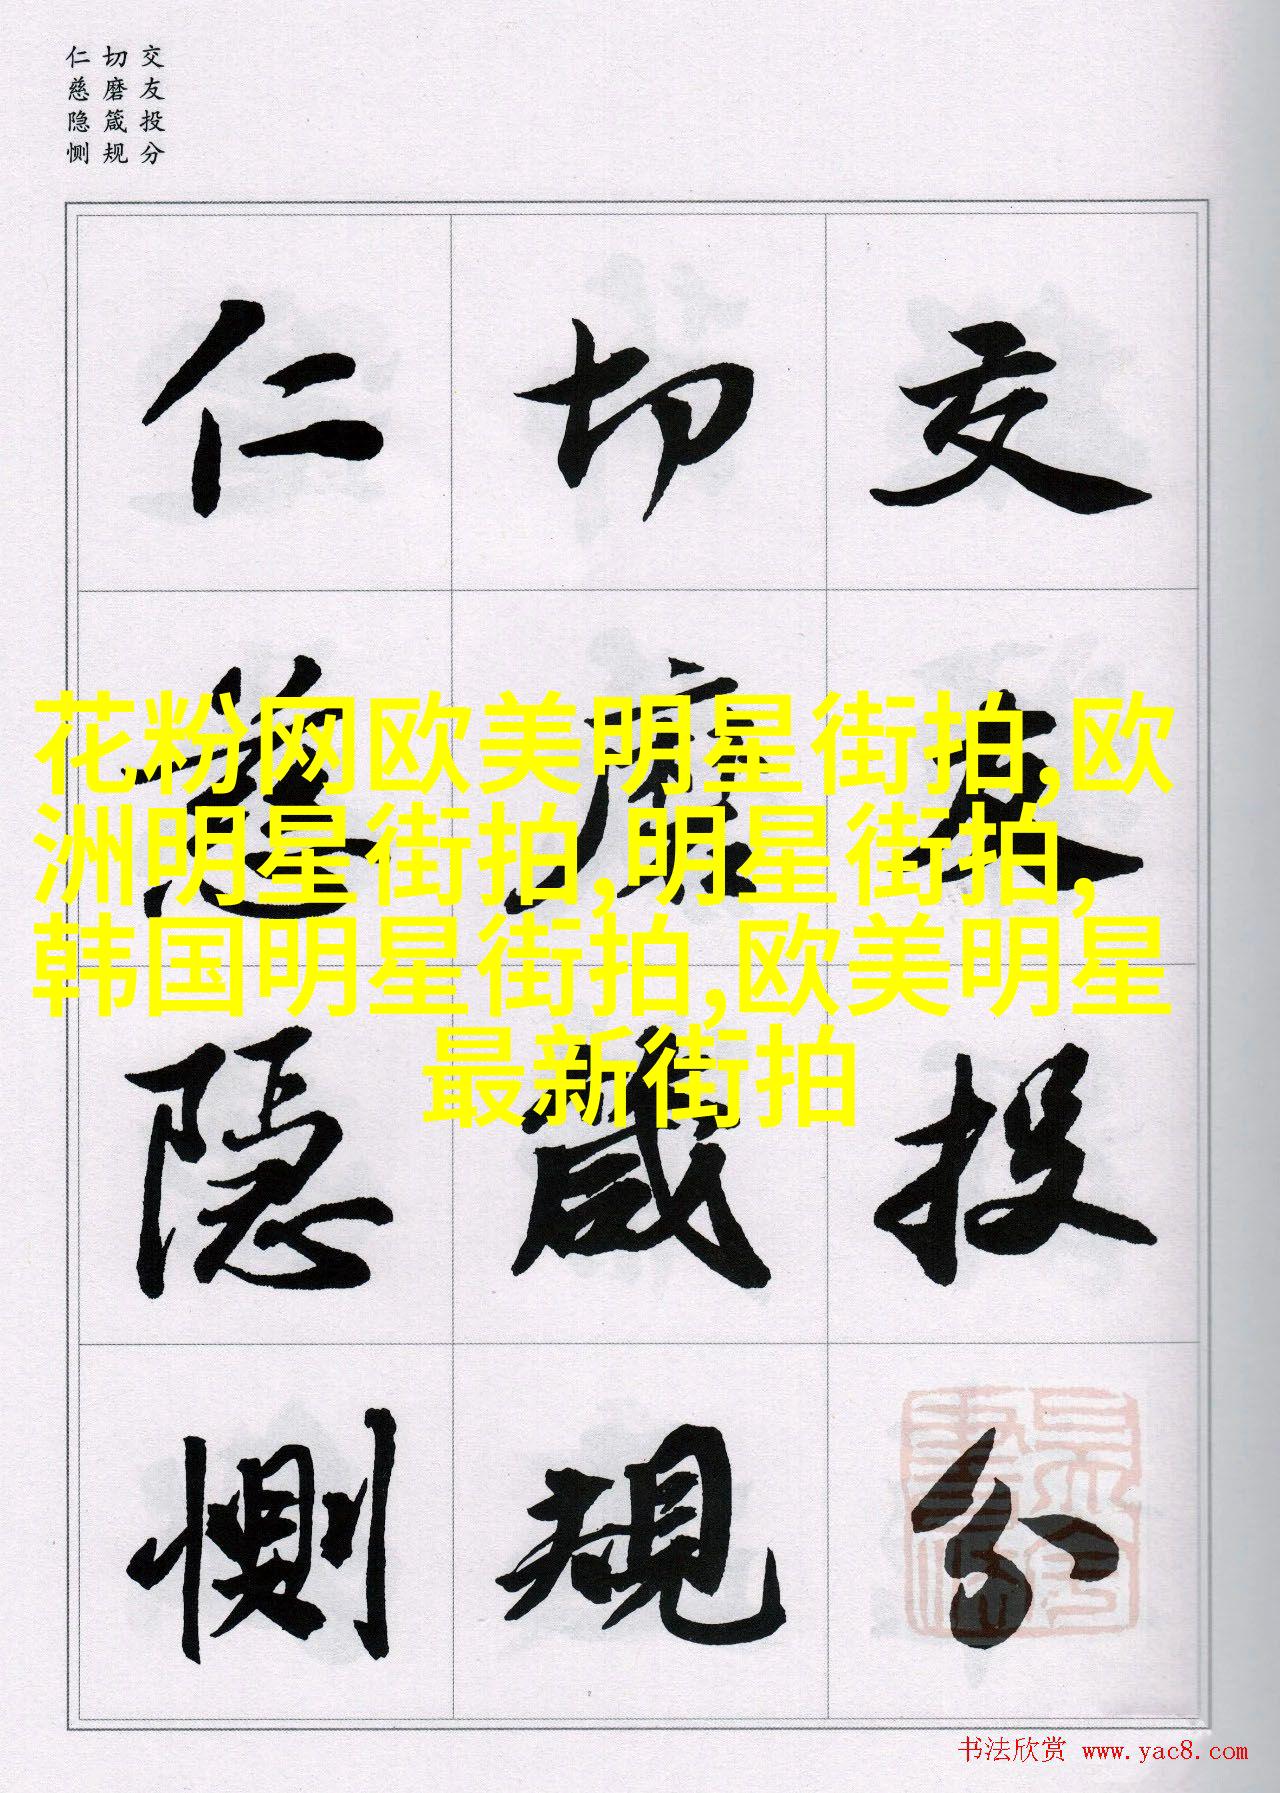 交友投分
切磨箴规
仁慈隐恻
交友投分
切磨箴规
仁慈隐恻
花粉网欧美明星街拍,欧
洲明星街拍,明星街拍,
韩国明星街拍,欧美明星
最新街拍
书法欣赏 www.yac8.com